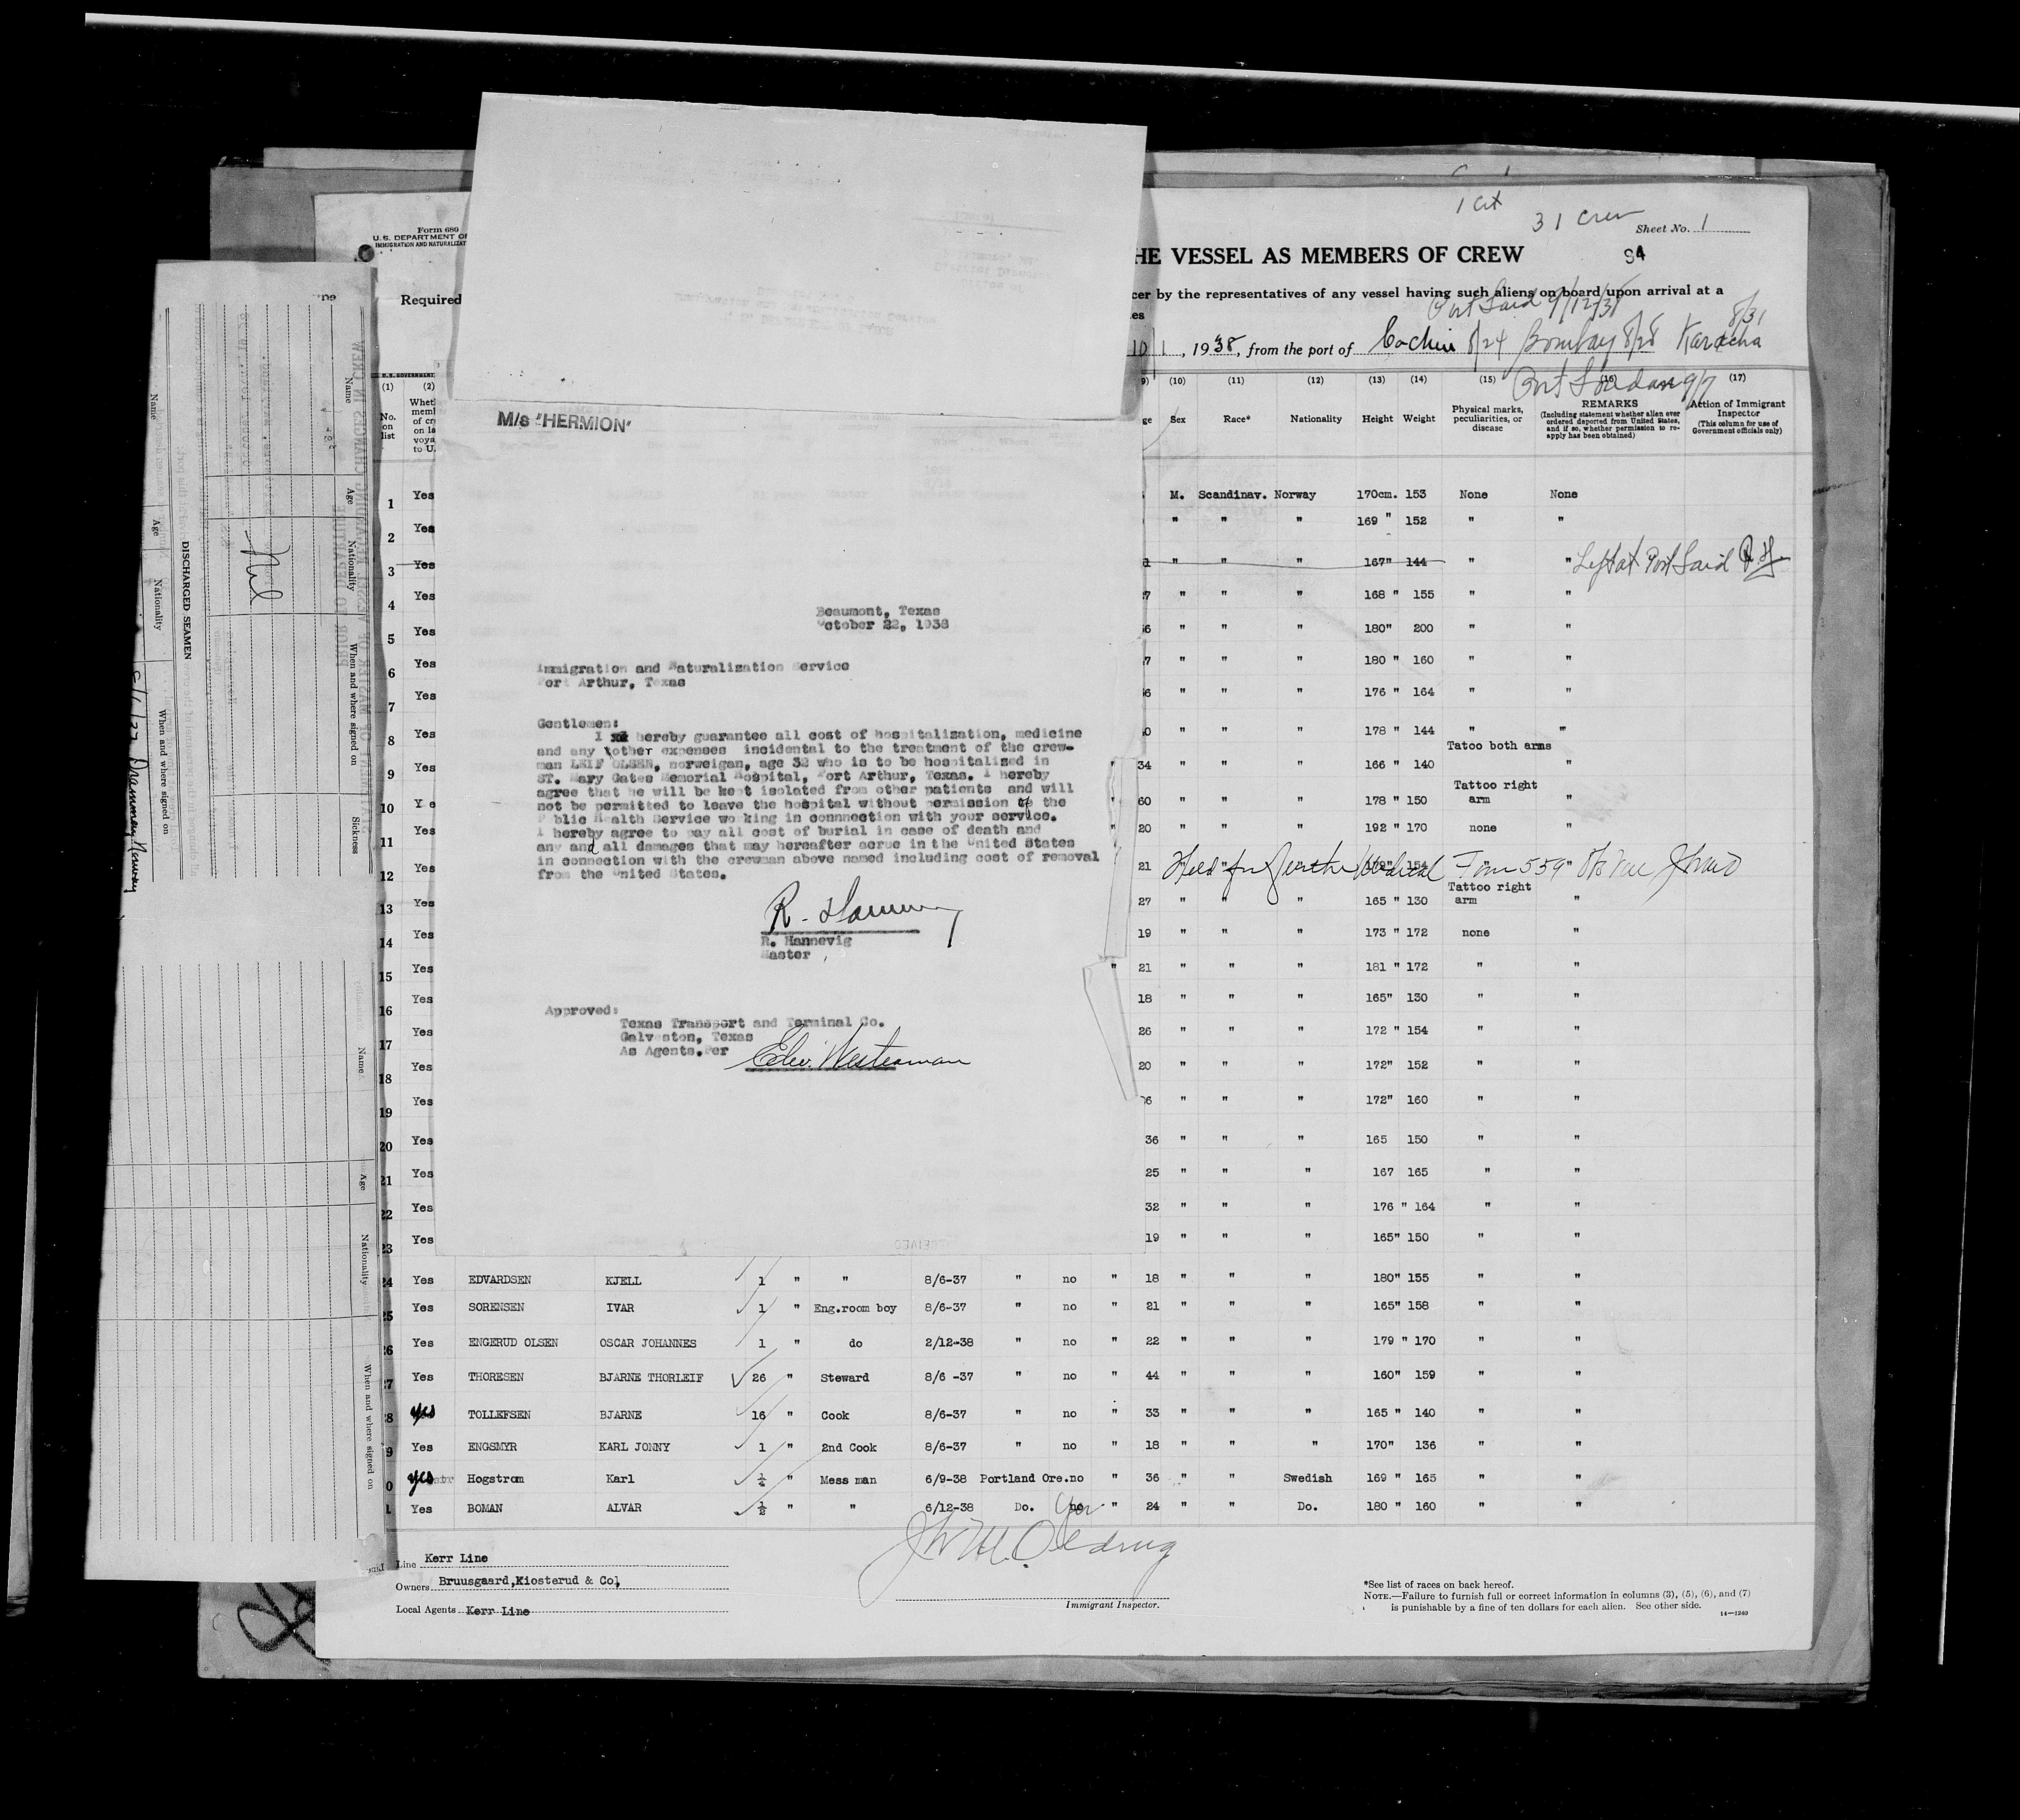 1 Cit
31 Crew
Sheet No. 1
Form 680
U. S. DEPARTMENT OF
IMMIGRATION AND NATURALIZAT
HE VESSEL AS MEMBERS OF CREW
94
Required
cer by the representatives of any vessel having such aliens on board upon arrival at a
Port Said 9/12/38
10/1, 1938, from the port of Cochin 8/24 Bombay 8/28 Karacha 8/31
Port Soudan 9/7
(1) (2) (10) (11) (12) (13) (14) (15) (16) (17)
No. on list
Sex Race* Nationality Height Weight
Physical marks, peculiarities, or disease
REMARKS
(Including statement whether alien ever ordered deported from United States, and if so, whether permission to re-apply has been obtained)
Action of Immigrant Inspector
(This column for use of Government officials only)
M/s "HERMION"
Beaumont, Texas
October 22, 1938
Immigration and Naturalization Service
Port Arthur, Texas
Gentlemen:
I hereby guarantee all cost of hospitalization, medicine
and any other expenses incidental to the treatment of the crew-
man LEIF OLSEN, norweigan, age 32 who is to be hospitalized in
ST. Mary Gates Memorial Hospital, Port Arthur, Texas. I hereby
agree that he will be kept isolated from other patients and will
not be permitted to leave the hospital without permission of the
Public Health Service working in connnection with your service.
I hereby agree to pay all cost of burial in case of death and
any and all damages that may hereafter acrue in the United States
in connection with the crewman above named including cost of removal
from the United States.
R. Hannevig
Master
Approved:
Texas Transport and Terminal Co.
Galveston, Texas
As Agents. Per Edw. Westerman
1 Yes M. Scandinav. Norway 170cm. 153 None None
2 Yes " " " 169 " 152 " "
3 Yes " " " 167" 144 " " Left at Port Said
4 Yes " " " 168 " 155 " "
5 Yes " " " 180" 200 " "
6 Yes " " " 180 " 160 " "
7 Yes " " " 176 " 164 " "
8 Yes " " " 178 " 144 " "
9 Yes " 34 " " " 166 " 140 Tatoo both arms "
10 Y e " 60 " " " 178 " 150 Tattoo right arm "
11 Yes " 20 " " " 192 " 170 none "
12 Yes 21 Held for further Medical Form 559
13 Yes 27 " " " 165 " 130 Tattoo right arm "
14 Yes 19 " " " 173 " 172 none "
15 Yes " 21 " " " 181 " 172 " "
16 Yes 18 " " " 165" 130 " "
17 Yes 26 " " " 172 " 154 " "
18 Yes 20 " " " 172" 152 " "
19 Yes " " " 172" 160 " "
20 Yes 36 " " " 165 150 " "
21 Yes 25 " " " 167 165 " "
22 Yes 32 " " " 176 " 164 " "
23 Yes 19 " " " 165" 150 " "
24 Yes EDVARDSEN KJELL 1 " " 8/6-37 " no " 18 " " " 180" 155 " "
25 Yes SORENSEN IVAR 1 " Eng.room boy 8/6-37 " no " 21 " " " 165" 158 " "
26 Yes ENGERUD OLSEN OSCAR JOHANNES 1 " do 2/12-38 " no " 22 " " " 179 " 170 " "
27 Yes THORESEN BJARNE THORLEIF 26 " Steward 8/6 -37 " no " 44 " " " 160" 159 " "
28 yes TOLLEFSEN BJARNE 16 " Cook 8/6-37 " no " 33 " " " 165 " 140 " "
29 Yes ENGSMYR KARL JONNY 1 " 2nd Cook 8/6-37 " no " 18 " " " 170" 136 " "
0 yes Hogstrom Karl ¼ " Mess man 6/9-38 Portland Ore. no " 36 " " Swedish 169 " 165 " "
1 Yes BOMAN ALVAR ½ " " 6/12-38 Do. no " 24 " " Do. 180 " 160 " "
Line Kerr Line
Owners Bruusgaard, Kiosterud & Co,
Local Agents Kerr Line
Immigrant Inspector.
*See list of races on back hereof.
NOTE.—Failure to furnish full or correct information in columns (3), (5), (6), and (7)
is punishable by a fine of ten dollars for each alien. See other side.
14—1240
Name Age Nationality When and where signed on Sickness
Nil
DISCHARGED SEAMEN
Name Age Nationality When and where signed on
Drammen Norway
Name Age Nationality When and where signed on